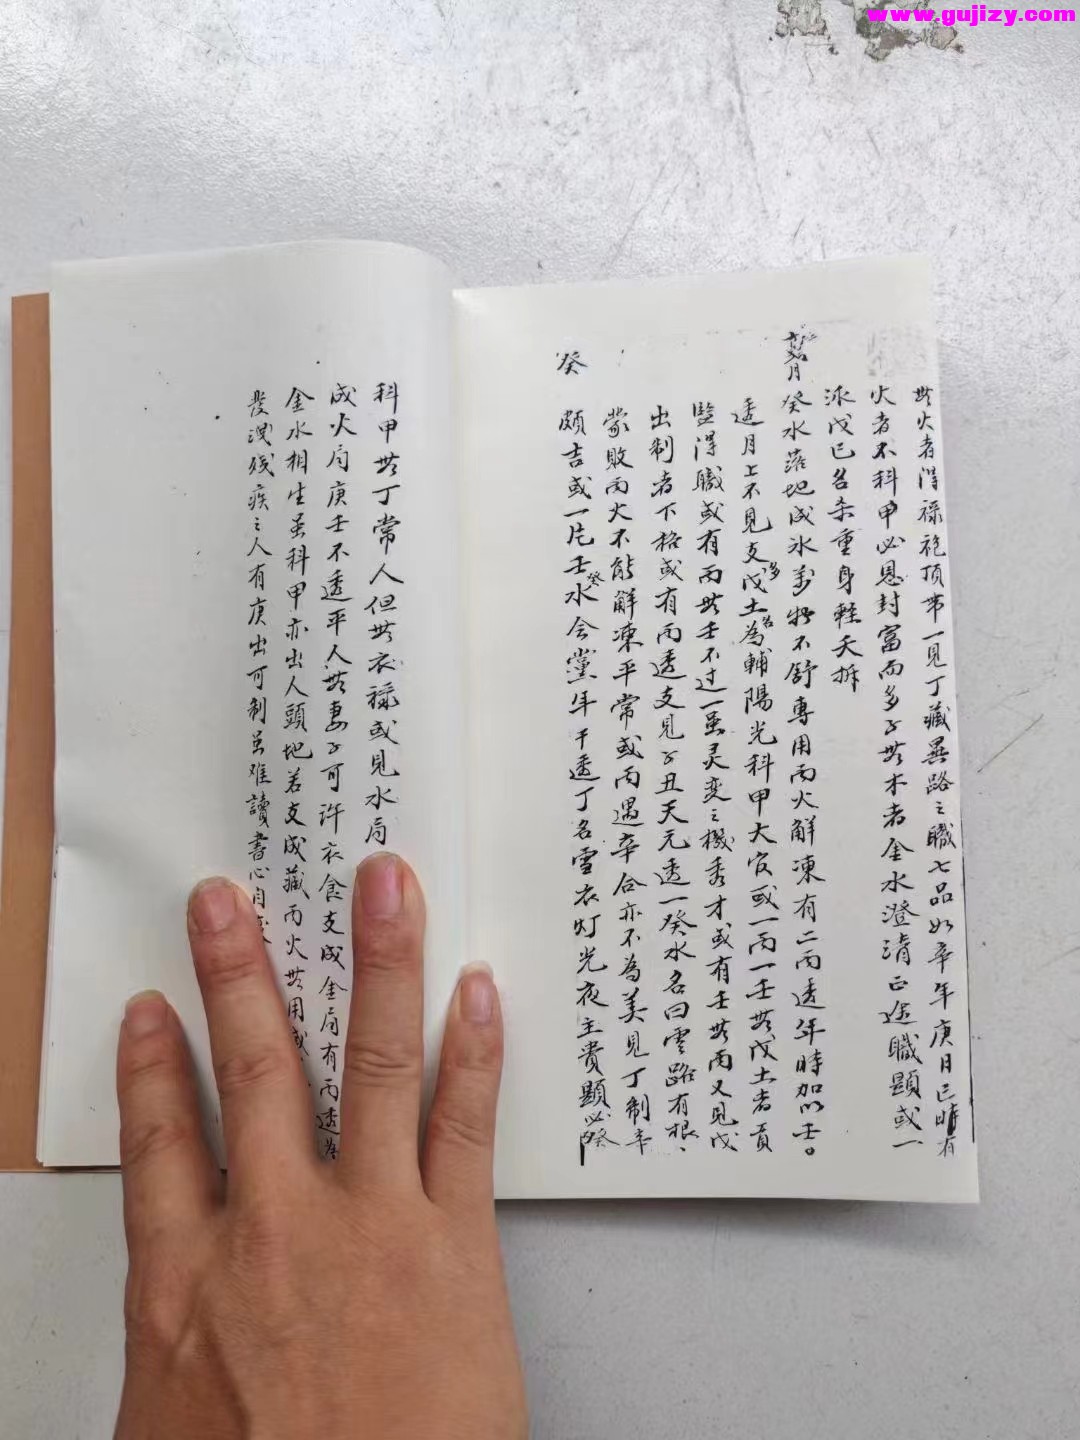 www.gujizy.com
無火者得祿袍頂带一見丁藏異路之職七品如辛年庚月巳時有
火者不科甲必恩封富而多子無木者金水澄清正途職題或一
派戊己名杀重身軽夭折
月癸水落地成冰萬物不舒專用丙火解凍有二丙透年時加以壬。
透月上不見支多戊土名為輔陽光科甲大官或一丙一壬無戊土者貢
監得職或有丙無壬不过一虽灵变之機秀才或有壬無丙又見戊
出制者下格或有丙透支見子丑天元透一癸水名曰雲路有根、
蒙敗丙火不能解凍平常或丙遇辛合亦不為美見丁制辛
癸頗吉或一片壬癸水会黨年干透丁名雪衣灯光夜主貴題必癸
科甲無丁常人但無衣禄或見水局
成火局庚壬不透平人無妻子可許衣食支成金局有丙透為
金水相生虽科甲亦出人頭地若支成藏丙火無用或
殘疾之人有庚出可制虽难讀書心自